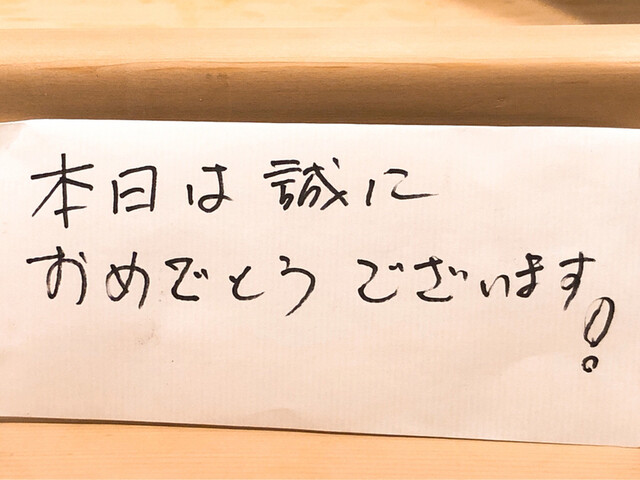 本日は誠に
おめでとうございます!